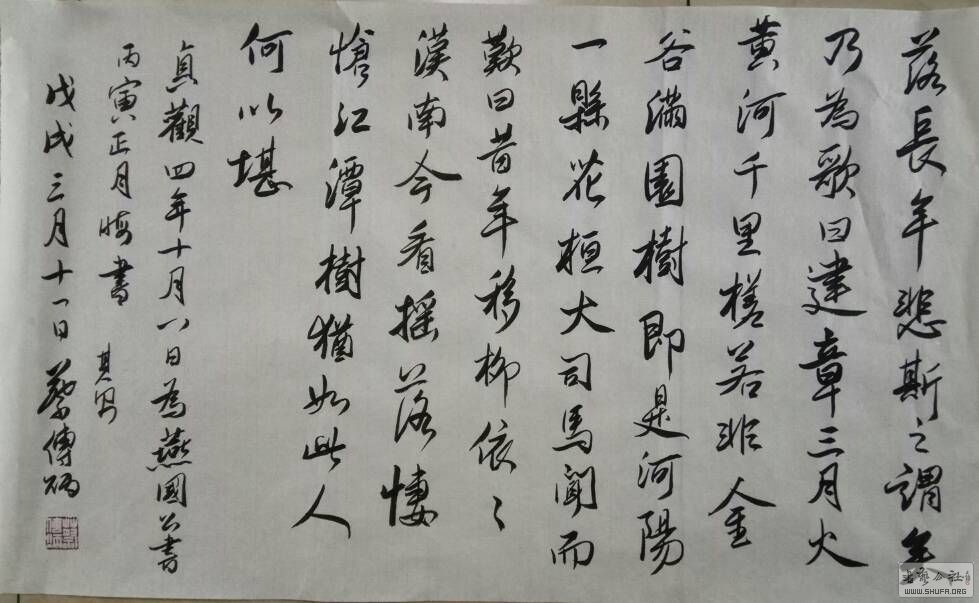 落長年悲斯之謂矣
乃為歌曰建章三月火
黄河千里槎若非金
谷滿園樹即是河陽
一縣花桓大司馬聞而
歎曰昔年移柳依〻
漢南今看摇落悽
愴江潭樹猶如此人
何以堪
貞觀四年十月八日為燕國公書
丙寅正月臨書
其寫
戊戌三月十一日蔡傳炳
书艺公社
WWW.SHUFA.ORG